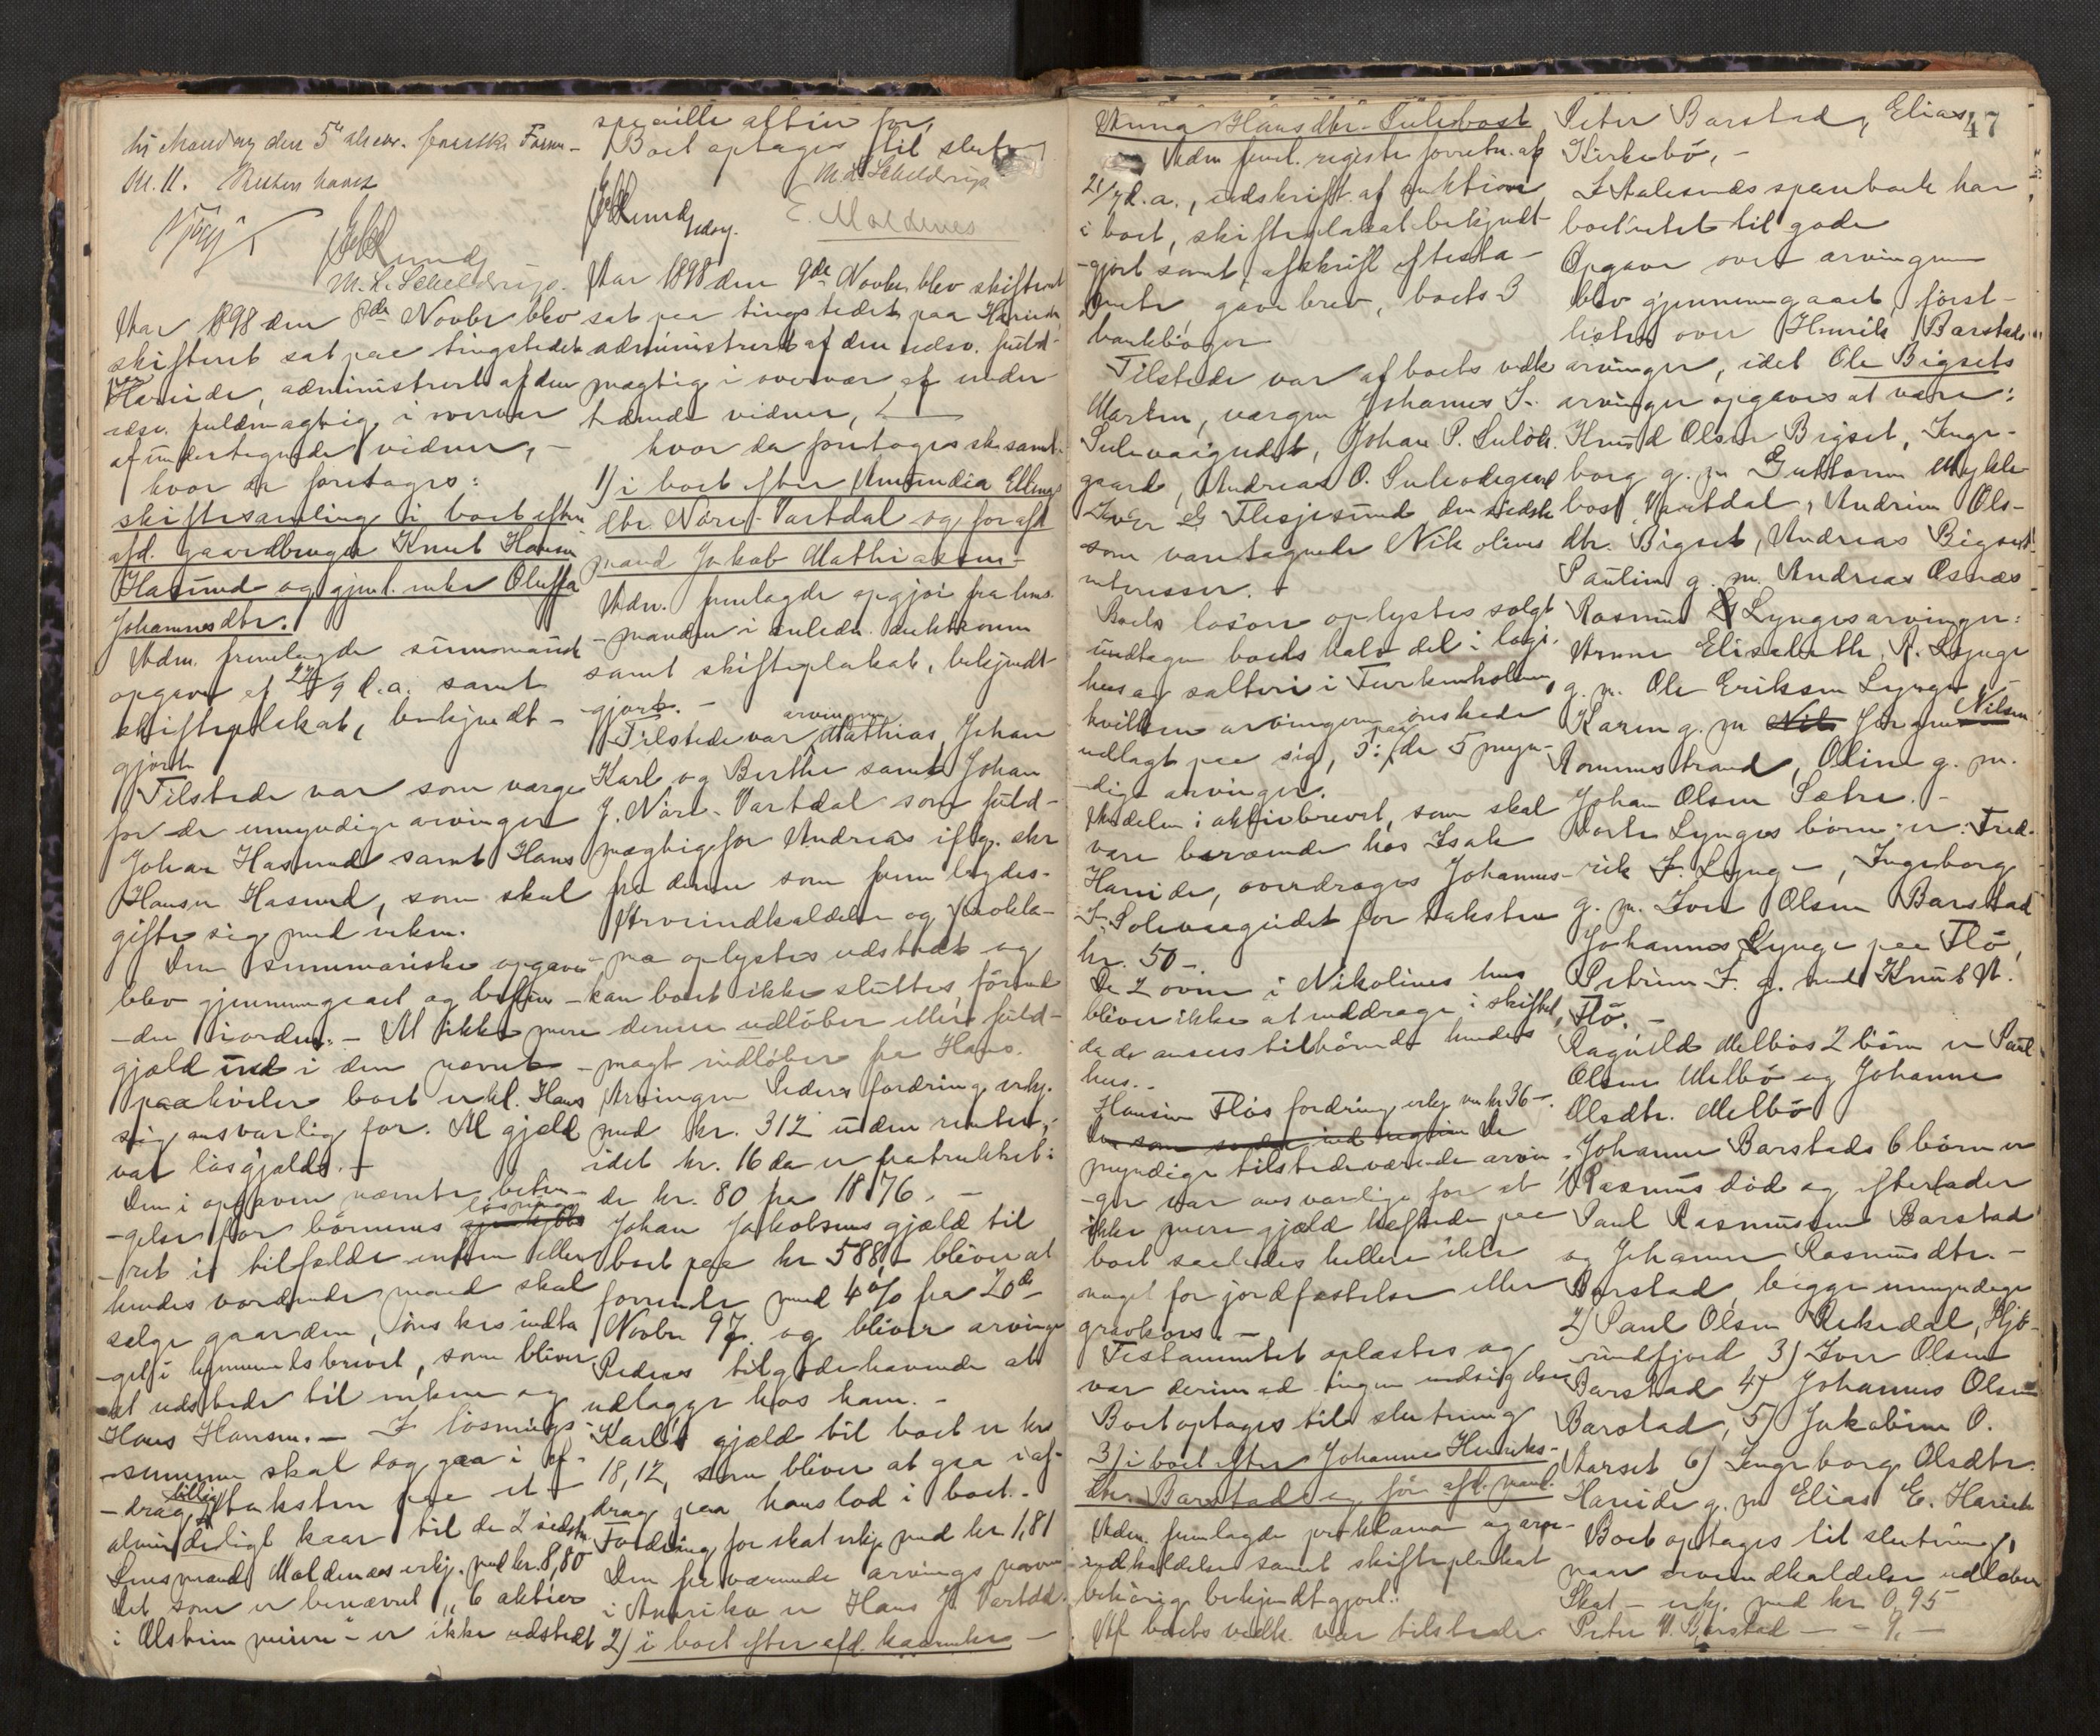 til Mandag den 5te
M. 11. Retten hævet
M. L. Scheldrup.
Aar 1898 den 8de Novbr blev
skifteret sat paa tingstedet
paa Hareide, administrert af den
edsv. fuldmægtig i overvær
af undertegnede vidner, –
hvor da foretages:
skiftesamling i boet efter
afd. gaardbruger Knut Hansen
Hasund og gjenl. enke Oluffa
Johannesdtr.
Adm. fremlagde summarisk
opgave af 27/9 d.a. samt
skifteplakat, bekjendt-
gjort
Tilstede var som værge
for de umyndige arvinger
Johan Hasund samt Hans
Hansen Hasund, som skal
gifte sig med enken.
Den summariske opgave
blev gjennemgaaet og befun-
den iorden. – At ikke mere
gjæld end i den nævnte
paahviler boet erkl. Hans
sig ansvarlig for. Al gjæld
var løsgjæld. –
Den i opgaven nævnte betin-
gelse for børnenes løsnings
ret i tilfælde enken eller
hendes vordende mand skal
selge gaarden, ønskes indta
get i hjemmelsbrevet, som bliver
at udstede til enken og
Hans Hansen. – I løsnings-
summen skal dog gaa i af-
drag tillæg taksten paa et
almindeligt kaar til de 2 sidste
Lensmand Maldenæs erkj. med kr. 8,80
Det som er benævnt "6 aktier
i Alstein minen" er ikke udstedt
specielle aktier for,
Boet optages til slutning
M. L. Scheldrup
E. Maldenes
Aar 1898 den 9de Novbr. blev skifteret
sat paa tingstedet paa Hareide,
administreret af den edsv. fuld-
mægtig i overvær af under-
tegnede vidner,
hvor da foretages sk. saml.
1) i boet efter Amundia Ellings
dtr. Nøre-Vartdal og før afd.
mand Jakob Mathiassen –
Adm. fremlagde opgjør fra lens-
manden i anledn. auktionen
samt skifteplakat, bekjendt
gjort. –
Tilstede var arvingerne Mathias, Johan
Karl og Berthe samt Johan
J. Nøre-Vartdal som fuld-
mægtig for Andreas iflg. skr
fra denne som fremlagdes.
Arveindkaldelse og prokla-
ma oplystes udstedt og
kan boet ikke sluttes, førend
denne udløber eller fuld-
magt indløber fra Hans.
Arvingen Peders fordring erkj.
med kr. 312 uden renter,
idet kr. 16 da er fratrukket i
de kr. 80 fra 1876. –
Johan Jakobsens gjæld til
boet paa kr 588,– bliver at
forrente med 4% fra 20de
Novbr 97. og bliver arvingen
Peders tilgodehavende at
udlægge hos ham. –
Karls gjæld til boet er kr
18,12, som bliver at gaa i af-
drag paa hans lod i boet. –
Fordring for skat erkj. med kr 1,81
Den fraværende arvings navn
i Amerika er Hans J. Vartdal.
2) i boet efter afd. kaarenke –
Anna Hansdtr. Sulebost
Adm freml. registr forretn. af
21/7 d.a., udskrift af auktion
i boet, skifteplakat bekjendt
-gjort samt afskrift af testa-
mente, gavebrev, boets 3
bankbøger
Tilstede var af boets vedk
Martin, værgen Johannes I.
Sulevaagudet, Johan P. Suløde
gaard, Andreas O. Sulødegaard
Iver Flesjesund den sidste
som varetagende Nikolines
interesser.
Boets løsøre oplystes solgt
undtagen boets halve del i lagi.
hus og salteri i Furkenholmen,
hvilken arvingerne ønskede
udlagt paa sig, ɔ: paa de 5 myn-
dige arvinger.
Andelen i aktiebrevet, som skal
være beroende hos Isak
Hareide, overdrages Johannes
I. Solevaagudet for taksten
kr. 50 –.
De 2 ovne i Nikolines hus
bliver ikke at inddrage i skiftet,
da de ansees tilhørende hendes
hus. –
Hansine Fløs fordring erkj. m kr. 36 –.
De
myndige tilstedeværende arvin-
ger var ansvarlige for at
ikke mere gjæld heftede paa
boet saaledes hellere ikke
noget for jordfæstelse eller
gravkors. –
Testamentet oplæstes og
var derimod ingen indsigelse
Boet optages til slutning
3) i boet efter Johanne Henriks-
dtr. Barstad og før afd. mand.
Adm. fremlagde proklama og arve-
indkaldelse samt skifteplakat
behørig bekjendtgjort.
Af boets vedk. var tilstede
47
Peter Barstad, Elias
Kirkebø, –
I Aalesunds sparebank har
boet intet til gode
Opgave over arvingerne
blev gjennemgaaet, først
listen over Henrik Barstads
arvinger, idet Ole Bigsets
arvinger opgaves at være:
Knud Olsen Bigset, Inge-
borg g. m Guttorm Mykle-
bost, Vartdal, Andrine Ols-
dtr. Bigset, Andreas Bigset
Pauline g. m. Andreas Osnæs
Rasmus Lynges arvinger:
Anne Elisabeth R. Lynge
g. m. Ole Eriksen Lynge, –
Karen g. m Jørgen Nilsen
Rommestrand, Oline g. m.
Johan Olsen Sætre. –
Dorte Lynges børn er: Fred-
rik F. Lynge, Ingeborg
g. m. Iver Olsen Barstad
Johannes Lynge paa Flø,
Petrine F. g. med Knut A.
Flø. –
Ragnild Melbøs 2 børn er Paul
Olsen Melbø og Johanne
Olsdtr. Melbø
Johanne Barstads 6 børn er
1) Rasmus død og efterlader
Paul Rasmussen Barstad
og Johanne Rasmusdtr. –
Barstad, begge umyndige
2) Paul Olsen Rekedal, Hjø-
rundfjord 3) Iver Olsen
Barstad 4) Johannes Olsen
Barstad, 5) Jakobine O.
Aarset 6) Ingeborg Olsdtr.
Hareide g. m Elias E. Hareide
Boet optages til slutning,
naar arveindkaldelse udløber
Skat – erkj. med kr 0,95
Peter A. Barstad – - 9. –